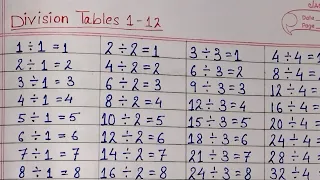 Division Tables 1-12
Date
Page
1÷1 = 1
2÷1 = 2
3÷1 = 3
4÷1 = 4
5÷1 = 5
6÷1 = 6
7÷1 = 7
8÷1 = 8
2÷2 = 1
4÷2 = 2
6÷2 = 3
8÷2 = 4
10÷2 = 5
12÷2 = 6
14÷2 = 7
16÷2 = 8
3÷3 = 1
6÷3 = 2
9÷3 = 3
12÷3 = 4
15÷3 = 5
18÷3 = 6
21÷3 = 7
24÷3 = 8
4÷4 = 1
8÷4 =
12÷4 =
16÷4 =
20÷4 =
24÷4 =
28÷4 =
32÷4 =